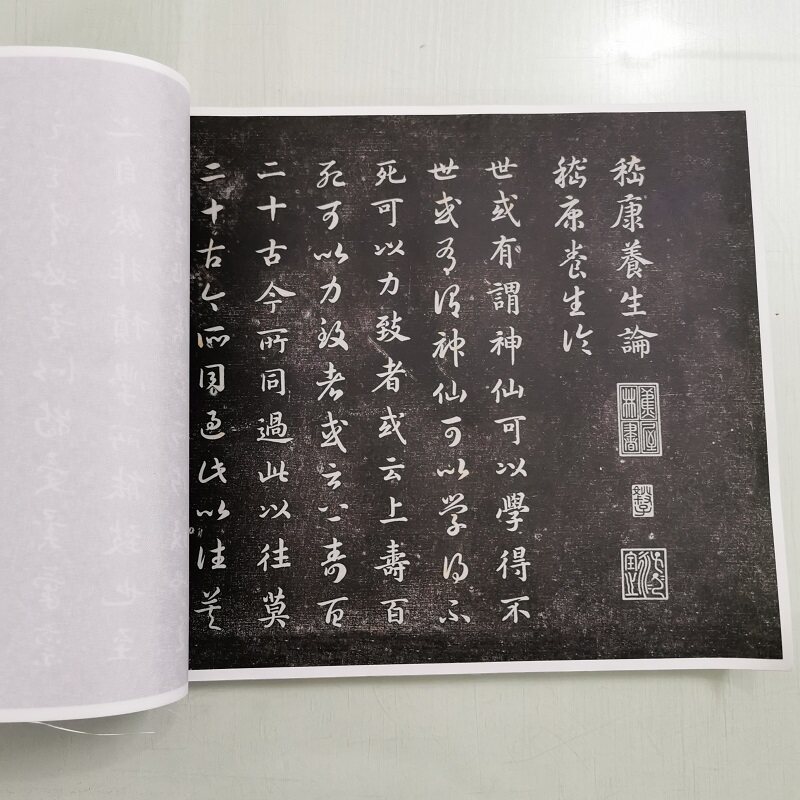 嵇康養生論
蕉林書屋
嵇康養生論
世或有謂神仙可以學得不
世或有謂神仙可以學得不
死可以力致者或云上壽百
死可以力致者或云上壽百
二十古今所同過此以往莫
二十古今所同過此以往莫